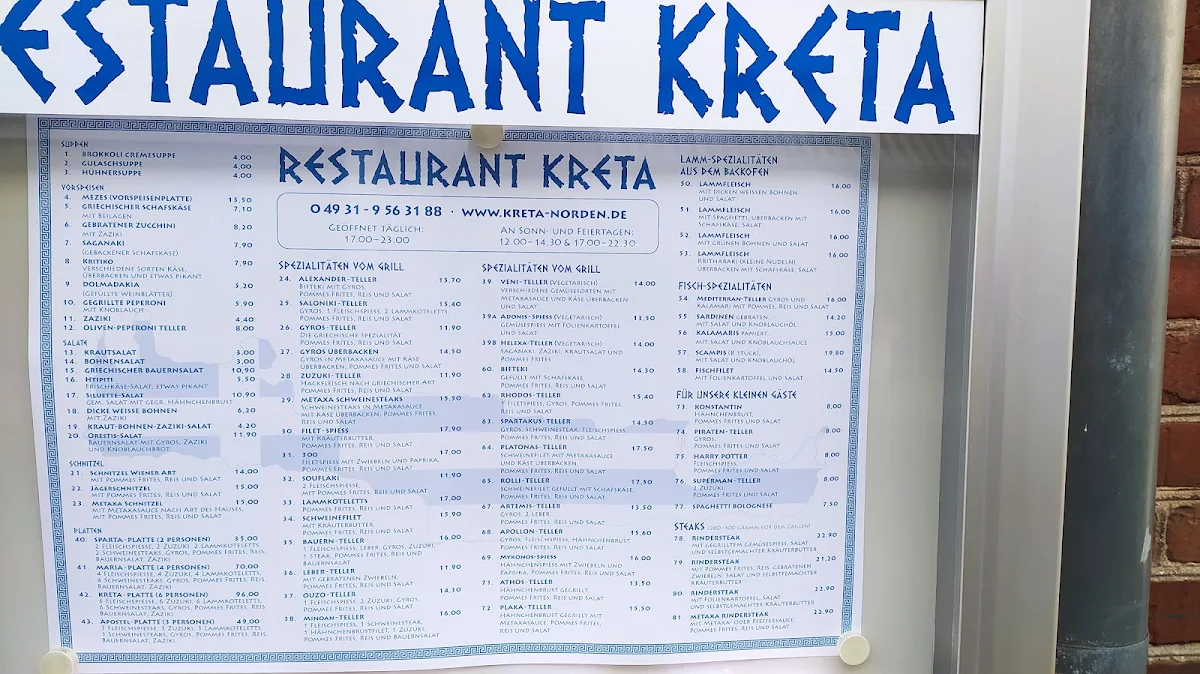 ESTAURANT KRETA
SUPPEN
1. BROKKOLI CREMESUPPE 4,00
2. GULASCHSUPPE 4,00
3. HÜHNERSUPPE 4,00
VORSPEISEN
4. MEZES (VORSPEISENPLATTE) 13,50
5. GRIECHISCHER SCHAFSKÄSE 7,10
MIT BEILAGEN
6. GEBRATENER ZUCCHINI 8,20
MIT ZAZIKI
7. SAGANAKI 7,90
(GEBACKENER SCHAFSKÄSE)
8. KRITIKO 7,90
VERSCHIEDENE SORTEN KÄSE,
ÜBERBACKEN UND ETWAS PIKANT
9. DOLMADAKIA 5,20
(GEFÜLLTE WEINBLÄTTER)
10. GEGRILLTE PEPERONI 5,90
MIT KNOBLAUCH
11. ZAZIKI 4,40
12. OLIVEN-PEPERONI TELLER 8,00
SALATE
13. KRAUTSALAT 3,00
14. BOHNENSALAT 3,00
15. GRIECHISCHER BAUERNSALAT 10,90
16. HTIPITI 5,50
FRISCHKÄSE-SALAT, ETWAS PIKANT
17. SILUETTE-SALAT 10,90
GEM. SALAT MIT GEGR. HÄHNCHENBRUST
18. DICKE WEISSE BOHNEN 6,20
MIT ZAZIKI
19. KRAUT-BOHNEN-ZAZIKI-SALAT 4,20
20. ORESTIS-SALAT 11,90
BAUERNSALAT MIT GYROS, ZAZIKI
UND KNOBLAUCHBROT
SCHNITZEL
21. SCHNITZEL WIENER ART 14,00
MIT POMMES FRITES, REIS UND SALAT
22. JÄGERSCHNITZEL 15,00
MIT POMMES FRITES, REIS UND SALAT
23. METAXA SCHNITZEL 15,00
MIT METAXASAUCE NACH ART DES HAUSES,
MIT POMMES FRITES, REIS UND SALAT
PLATTEN
40. SPARTA-PLATTE (2 PERSONEN) 35,00
2 FLEISCHSPIESSE, 2 ZUZUKI, 2 LAMMKOTELETTS,
2 SCHWEINESTEAKS, GYROS, POMMES FRITES, REIS,
BAUERNSALAT, ZAZIKI
41. MARIA-PLATTE (4 PERSONEN) 70,00
4 FLEISCHSPIESSE, 4 ZUZUKI, 4 LAMMKOTELETTS,
4 SCHWEINESTEAKS, GYROS, POMMES FRITES, REIS,
BAUERNSALAT, ZAZIKI
42. KRETA-PLATTE (6 PERSONEN) 96,00
6 FLEISCHSPIESSE, 6 ZUZUKI, 6 LAMMKOTELETTS,
6 SCHWEINESTEAKS, GYROS, POMMES FRITES, REIS,
BAUERNSALAT, ZAZIKI
43. APOSTEL-PLATTE (3 PERSONEN) 49,00
3 FLEISCHSPIESSE, 3 ZUZUKI, 3 LAMMKOTELETTS,
3 SCHWEINESTEAKS, GYROS, POMMES FRITES, REIS,
BAUERNSALAT, ZAZIKI
RESTAURANT KRETA
0 49 31 - 9 56 31 88 · WWW.KRETA-NORDEN.DE
GEÖFFNET TÄGLICH:
17.00–23.00
AN SONN- UND FEIERTAGEN:
12.00–14.30 & 17.00–22.30
SPEZIALITÄTEN VOM GRILL
24. ALEXANDER-TELLER 15,70
BIFTEKI MIT GYROS,
POMMES FRITES, REIS UND SALAT
25. SALONIKI-TELLER 15,40
GYROS, 1 FLEISCHSPIESS, 2 LAMMKOTELETTS,
POMMES FRITES, REIS UND SALAT
26. GYROS-TELLER 11,90
DIE GRIECHISCHE SPEZIALITÄT
POMMES FRITES, REIS UND SALAT
27. GYROS ÜBERBACKEN 14,50
GYROS IN METAXASAUCE MIT KÄSE
ÜBERBACKEN, POMMES FRITES UND SALAT
28. ZUZUKI-TELLER 11,90
HACKFLEISCH NACH GRIECHISCHER ART
POMMES FRITES, REIS UND SALAT
29. METAXA SCHWEINESTEAKS 15,50
SCHWEINESTEAKS IN METAXASAUCE
MIT KÄSE ÜBERBACKEN, POMMES FRITES,
REIS UND SALAT
30. FILET-SPIESS 17,90
MIT KRÄUTERBUTTER,
POMMES FRITES, REIS UND SALAT
31. 300 17,00
FILETSPIESS MIT ZWIEBELN UND PAPRIKA,
POMMES FRITES, REIS UND SALAT
32. SOUFLAKI 11,90
2 FLEISCHSPIESSE,
MIT POMMES FRITES, REIS UND SALAT
33 LAMMKOTELETTS 17,00
POMMES FRITES, REIS UND SALAT
34. SCHWEINEFILET 15,90
MIT KRÄUTERBUTTER,
POMMES FRITES, REIS UND SALAT
35 BAUERN-TELLER 16,00
1 FLEISCHSPIESS, LEBER, GYROS, ZUZUKI,
1 STEAK, POMMES FRITES, REIS UND SALAT
36. LEBER-TELLER 11,90
MIT GEBRATENEN ZWIEBELN,
POMMES FRITES, REIS UND SALAT
37. OUZO-TELLER 14,30
1 FLEISCHSPIESS, 2 ZUZUKI, GYROS,
POMMES FRITES, REIS UND SALAT
38. MINOAN-TELLER 16,00
1 FLEISCHSPIESS, 1 SCHWEINESTEAK,
1 HÄHNCHENBRUSTFILET, 1 ZUZUKI,
POMMES FRITES, REIS UND BAUERNSALAT
SPEZIALITÄTEN VOM GRILL
39. VENI-TELLER (VEGETARISCH) 14,00
VERSCHIEDENE GEMÜSESORTEN MIT
METAXASAUCE UND KÄSE ÜBERBACKEN
UND SALAT
39A ADONIS-SPIESS (VEGETARISCH) 13,50
GEMÜSESPIESS MIT FOLIENKARTOFFEL
UND SALAT
39B HELEXA-TELLER (VEGETARISCH) 14,00
SAGANAKI, ZAZIKI, KRAUTSALAT UND
POMMES FRITES
60. BIFTEKI 14,30
GEFÜLLT MIT SCHAFSKÄSE,
POMMES FRITES, REIS UND SALAT
62. RHODOS-TELLER 15,40
1 FILETSPIESS, GYROS, POMMES FRITES,
REIS UND SALAT
63. SPARTAKUS-TELLER 14,50
GYROS, SCHWEINESTEAK, FLEISCHSPIESS,
POMMES FRITES, REIS UND SALAT
64. PLATONAS-TELLER 17,50
SCHWEINEFILET MIT METAXASAUCE
UND KÄSE ÜBERBACKEN,
POMMES FRITES, REIS UND SALAT
65. ROLLI-TELLER 17,50
SCHWEINEFILET GEFÜLLT MIT SCHAFSKÄSE,
POMMES FRITES, REIS UND SALAT
67. ARTEMIS-TELLER 13,50
GYROS, 2 LEBER
POMMES FRITES, REIS UND SALAT
68. APOLLON-TELLER 15,60
GYROS, FLEISCHSPIESS, HÄHNCHENBRUST
POMMES FRITES, REIS UND SALAT
69. MYKONOS-SPIESS 16,00
HÄHNCHENSPIESS MIT ZWIEBELN UND
PAPRIKA, POMMES FRITES, REIS UND SALAT
71. ATHOS-TELLER 13,50
HÄHNCHENBRUST GEGRILLT
POMMES FRITES, REIS UND SALAT
72. PLAKA-TELLER 15,50
HÄHNCHENBRUST GEGRILLT MIT
METAXASAUCE, POMMES FRITES,
REIS UND SALAT
LAMM-SPEZIALITÄTEN
AUS DEM BACKOFEN
50. LAMMFLEISCH 16,00
MIT DICKEN WEISSEN BOHNEN
UND SALAT
51. LAMMFLEISCH 16,00
MIT SPAGHETTI, ÜBERBACKEN MIT
SCHAFSKÄSE, SALAT
52. LAMMFLEISCH 16,00
MIT GRÜNEN BOHNEN UND SALAT
53. LAMMFLEISCH 16,00
KRITHARAKI (KLEINE NUDELN),
ÜBERBACKEN MIT SCHAFSKÄSE, SALAT
FISCH-SPEZIALITÄTEN
54. MEDITERRAN-TELLER GYROS UND 16,00
KALAMARI MIT POMMES, REIS UND SALAT
55. SARDINEN GEBRATEN, 14,20
MIT SALAT UND KNOBLAUCHÖL
56 KALAMARIS PANIERT, 15,00
MIT SALAT UND KNOBLAUCHSAUCE
57. SCAMPIS (8 STÜCK), 19,80
MIT SALAT UND KNOBLAUCHÖL
58. FISCHFILET 14,50
MIT FOLIENKARTOFFEL UND SALAT
FÜR UNSERE KLEINEN GÄSTE
73. KONSTANTIN 8,00
HÄHNCHENBRUST,
MIT POMMES FRITES
74. PIRATEN-TELLER 8,00
GYROS,
MIT POMMES FRITES
75. HARRY POTTER 8,00
FLEISCHSPIESS,
MIT POMMES FRITES
76. SUPERMAN-TELLER 8,00
2 ZUZUKI,
MIT POMMES FRITES
77. SPAGHETTI BOLOGNESE 7,50
STEAKS (280–300 GRAMM VOR DEM GRILLEN)
78. RINDERSTEAK 22,90
MIT GEGRILLTEM GEMÜSE, SALAT
UND SELBSTGEMACHTER KRÄUTERBUTTER
79 RINDERSTEAK 21,20
MIT POMMES FRITES, REIS, GEBRATENEN
ZWIEBELN, SALAT UND SELBSTGEMACHTER
KRÄUTERBUTTER
80. RINDERSTEAK 22,90
MIT FOLIENKARTOFFEL, SALAT
UND SELBSTGEMACHTER KRÄUTERBUTTER
81 METAXA RINDERSTEAK 22,90
MIT METAXA- ODER PFEFFERSAUCE,
POMMES FRITES, REIS UND SALAT